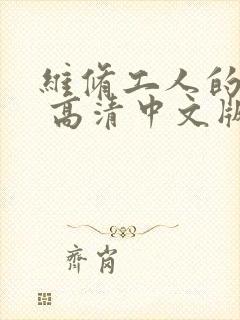 維脩工人的
高清中文版
齊肖